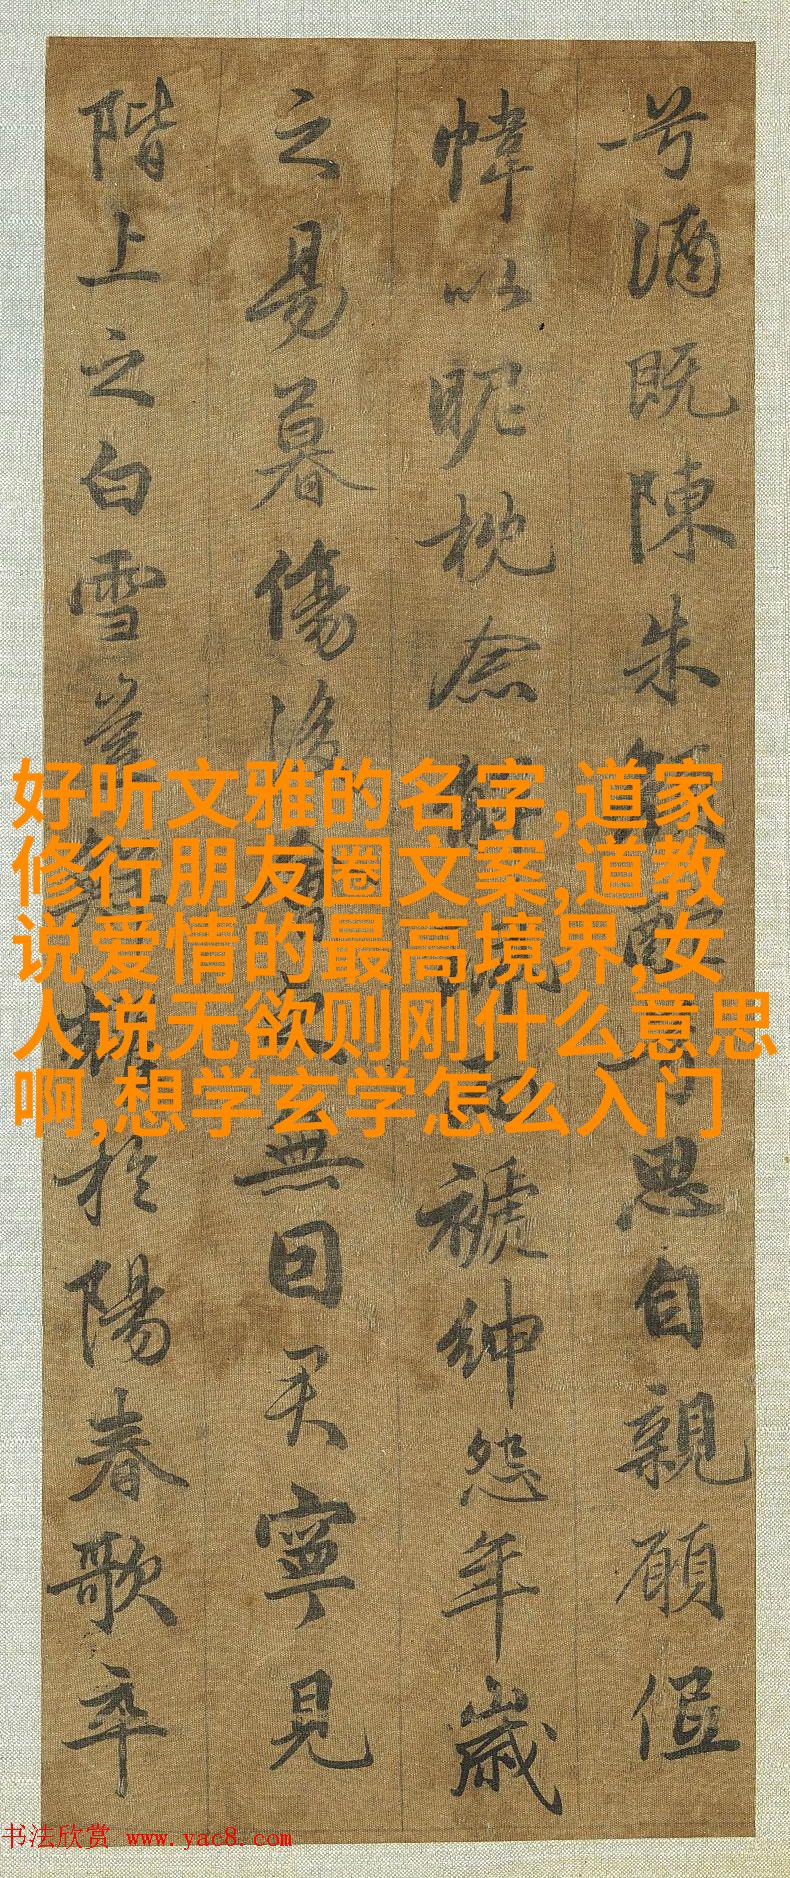 兮酒既陳朱顏酡兮思自親願低
幃以昵枕念解珮而褫紳怨年歲
之易暮傷後會之無因君寧見
階上之白雪豈鮮耀於陽春歌卒
好听文雅的名字,道家
修行朋友圈文案,道教
说爱情的最高境界,女
人说无欲则刚什么意思
啊,想学玄学怎么入门
书法欣赏 www.yac8.com